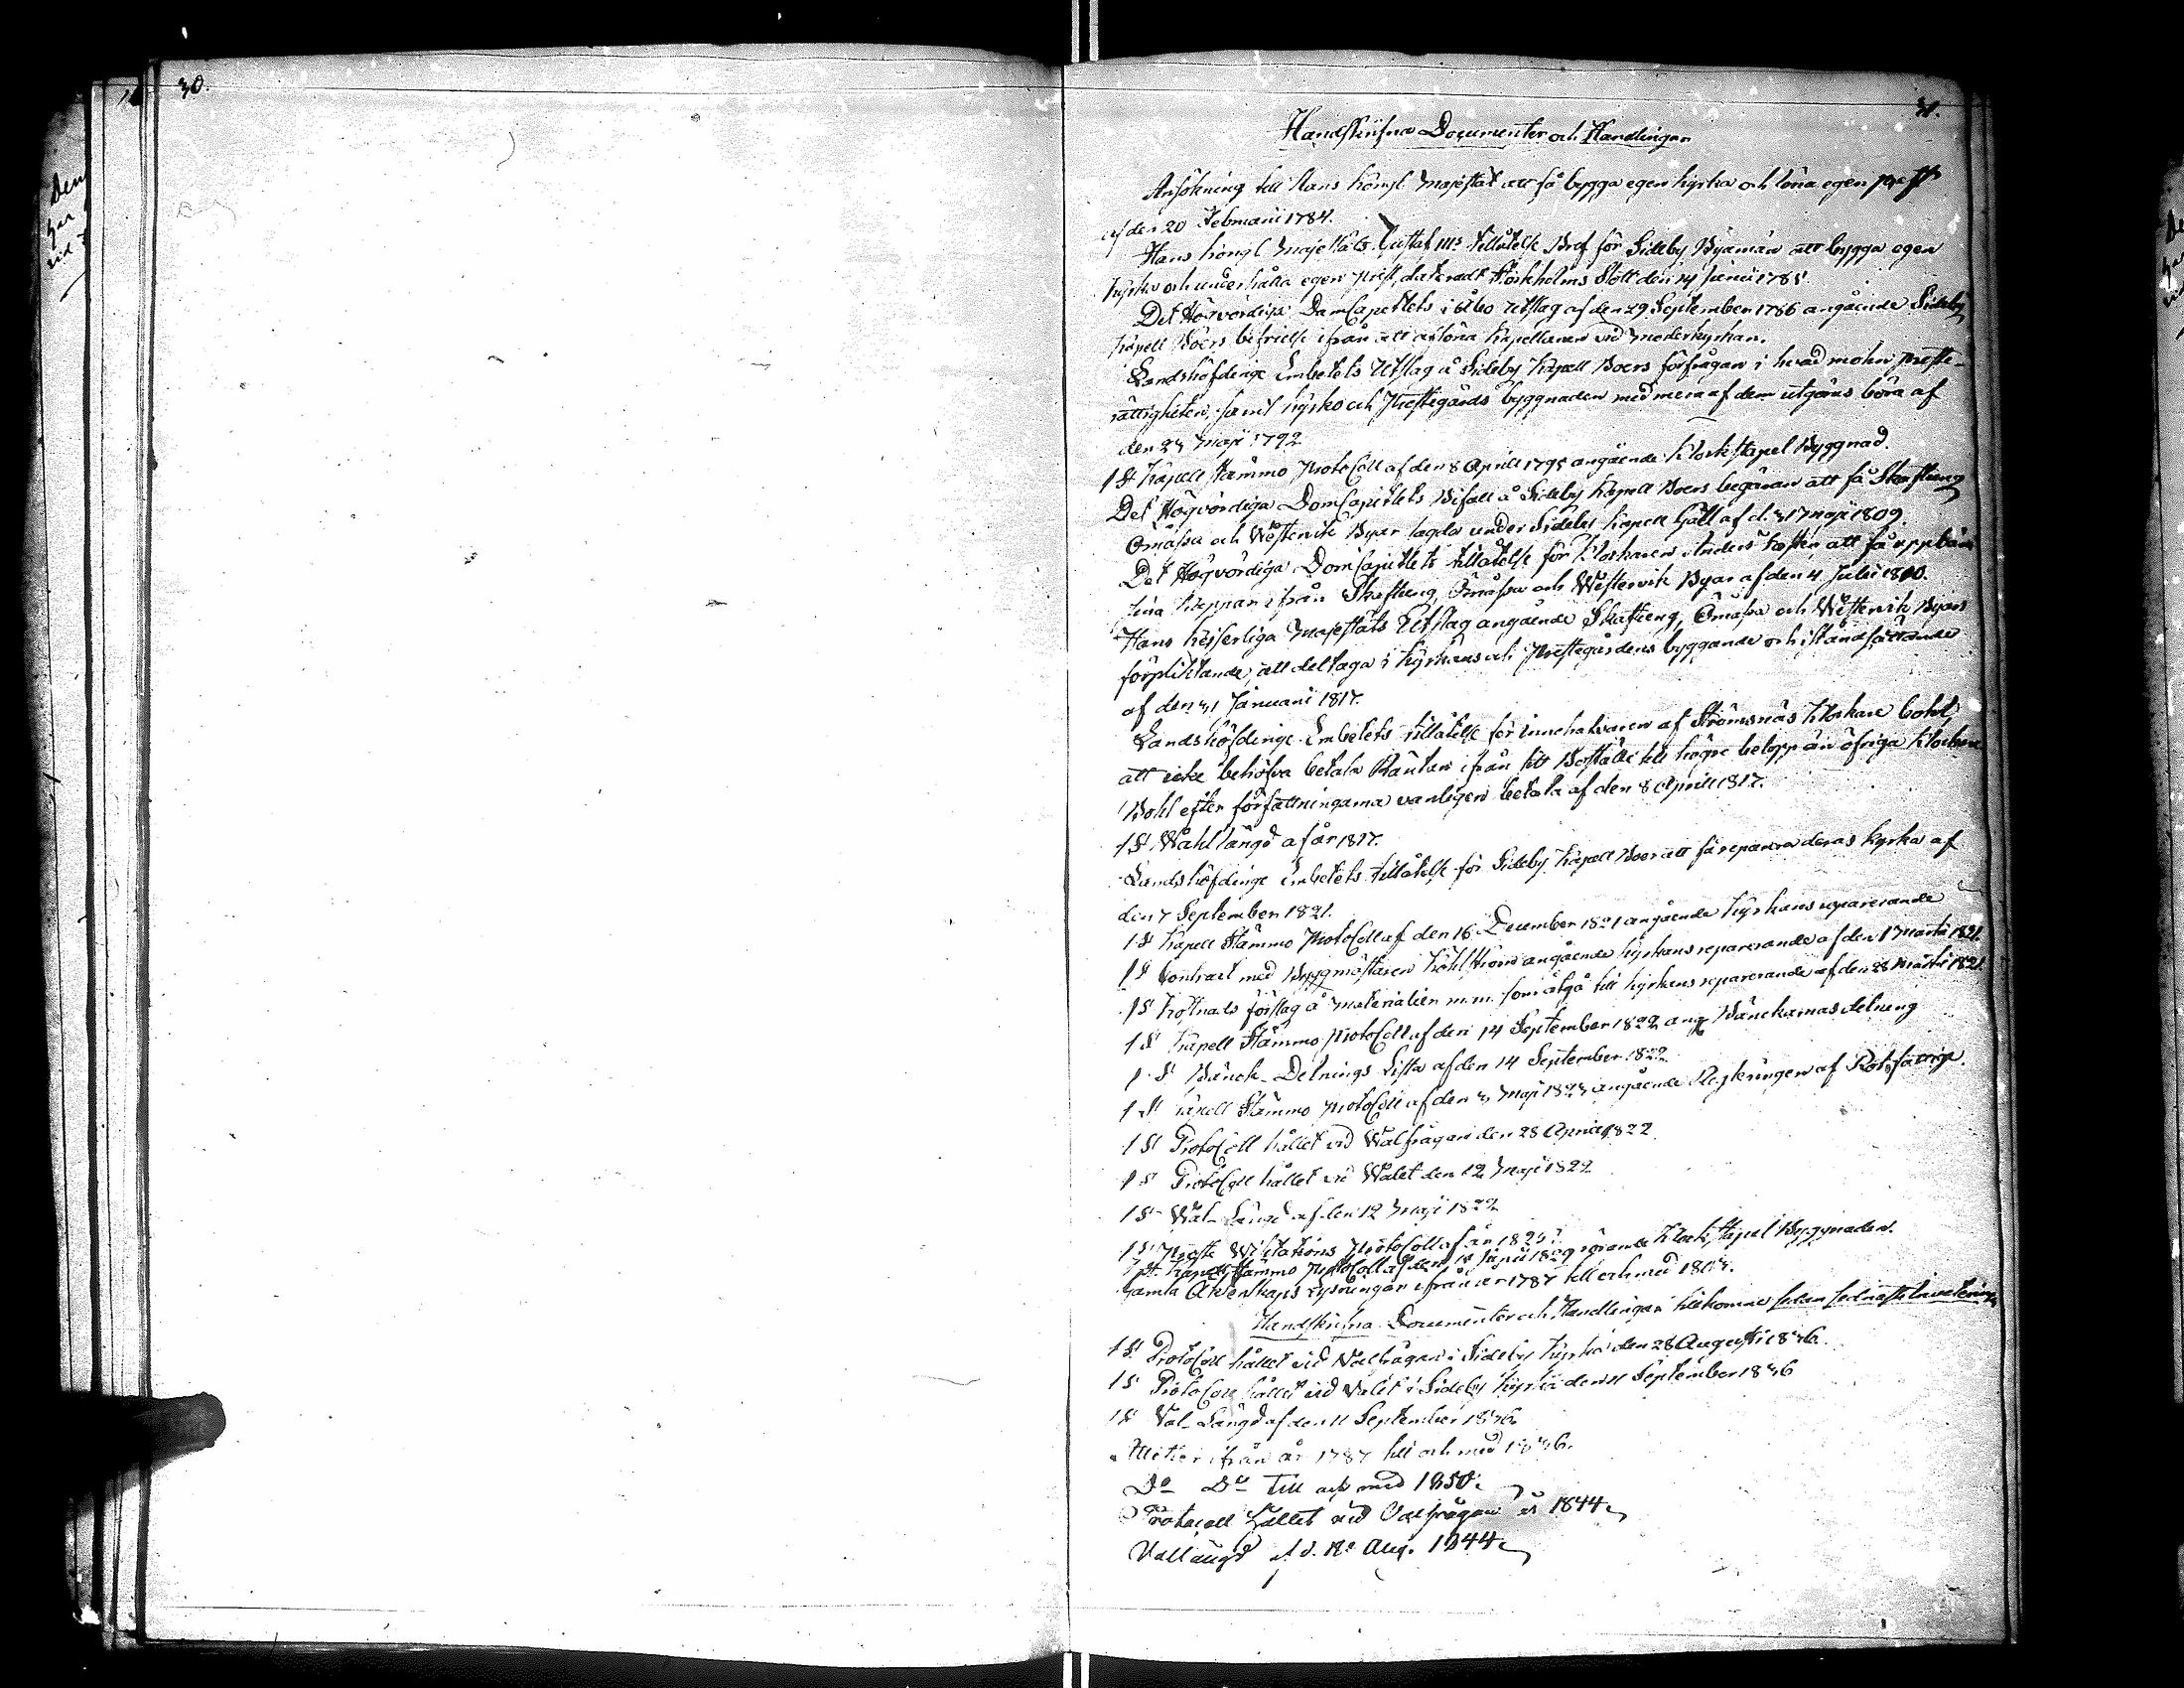 30.
31.
Handskrifna Documenter och Handlingar
Ansökning till Hans Kongl. Majestät att få bygga egen kyrka och löna egen prest
af den 20 Februarii 1784.
Hans Kongl. Majestäts Gustaf III:s tillåtelse Bref för Sideby Byamän att bygga egen
kyrka och underhålla egen prest, dateradt Stockholms Slott den 14 Junii 1785.
Det Högvördiga DomCapitlets i Åbo Utslag af den 29 September 1786 angående Sideby
Kapell Boers befrielse ifrån att aflöna Kapellanen vid Moderkyrkan.
Landshöfdinge Embetets Utslag å Sideby Kapell Boers förfrågan i hvad mohn preste-
rättigheten, samt kyrko och Prestegårds byggnaden med mera af dem utgöras böra af
den 23 Maji 1792
1 St Kapell stämmo Protocoll af den 8 Aprill 1795 angående Klockstapel Byggnad.
Det Högvördiga DomCapitlets Bifall å Sideby Kapell Boers begäran att få Skaftung
Ömåssa och Westervik Byar lagda under Sideby Kapell Gäll af d. 31 Maji 1809.
Det Högvördiga DomCapitlets tillåtelse för Klockaren Anders att få uppbära
sina Kappar ifrån Skaftung, Ömåssa och Westervik Byar af den 4 Julii 1810.
Hans Kejserliga Majestäts Utslag angående Skaftung, Ömåssa och Westervik Byars
förpliktande, att deltaga i kyrkans och Prestegårdens byggande och iståndsättande
af den 31 Januarii 1817.
Landshöfdinge Embetets tillåtelse för innehafvaren af Strömsnäs Klockare bohl,
att icke behöfva betala Räntan ifrån sitt Boställe till högre belopp än öfriga Klockare
Bohl efter författningarna vanligen betala af den 8 Aprill 1817.
1 St Wahllängd af år 1817.
Landshöfdinge Embetets tillåtelse för Sideby Kapell Boer att få reparera deras kyrka af
den 7 September 1821.
1 St Kapell Stämmo Protocoll af den 16 December 1821 angående kyrkans reparerande
1 St Contract med Byggmästaren angående kyrkans reparerande af den 1 Martii 1821.
1 St Kostnads förslag å materialier m.m. som åtgå till kyrkans reparerande af den 28 Martii 1821.
1 St Kapell Stämmo Protocoll af den 14 September 1822 ang Bänckarnas delning
1 St Bänck-Delnings Lista af den 14 September 1822
1 St Kapell Stämmo Protocoll af den 3 Maji 1823 angående Regleringen af Rotefattiga.
1 St Protocoll hållet vid Walfrågan den 28 April 1822
1 St Protocoll hållet vid Walet den 12 Maji 1822
1 St Wal-Längd af den 12 Maji 1822
1 St Probste Visitations Protocoll af år
1 St. Kapell stämmo Protocoll af den 1829 rörande Klockstapel Byggnaden.
Gamla Äktenskaps Lysningar ifrån år 1787 till och med
Handskrifna Documenter och Handlingar tillkomne sedan sednaste Inventering
1 St Protocoll hållet vid Walfrågan i Sideby kyrka den 28 Augusti 1836.
1 St Protocoll hållet vid Valet i Sideby kyrka den 11 September 1836
1 St Val-Längd af den 11 September 1836
Attester ifrån år 1787 till och med 1836.
Do Do till och med 1850.
Protocoll hållet vid Valfrågan år 1844
Vallängd af d. 18 Aug. 1844